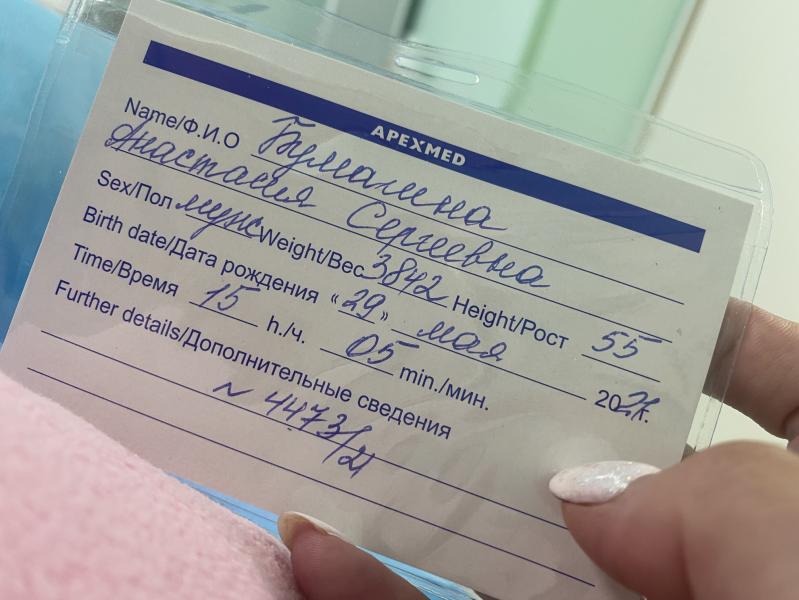 APEXMED
Name/Ф.И.О Бумагина
Анастасия Сергеевна
Sex/Пол муж Weight/Вес 3842 Height/Рост 55
Birth date/Дата рождения «29» мая 2021г.
Time/Время 15 h./ч. 05 min./мин.
Further details/Дополнительные сведения
N 4473/21